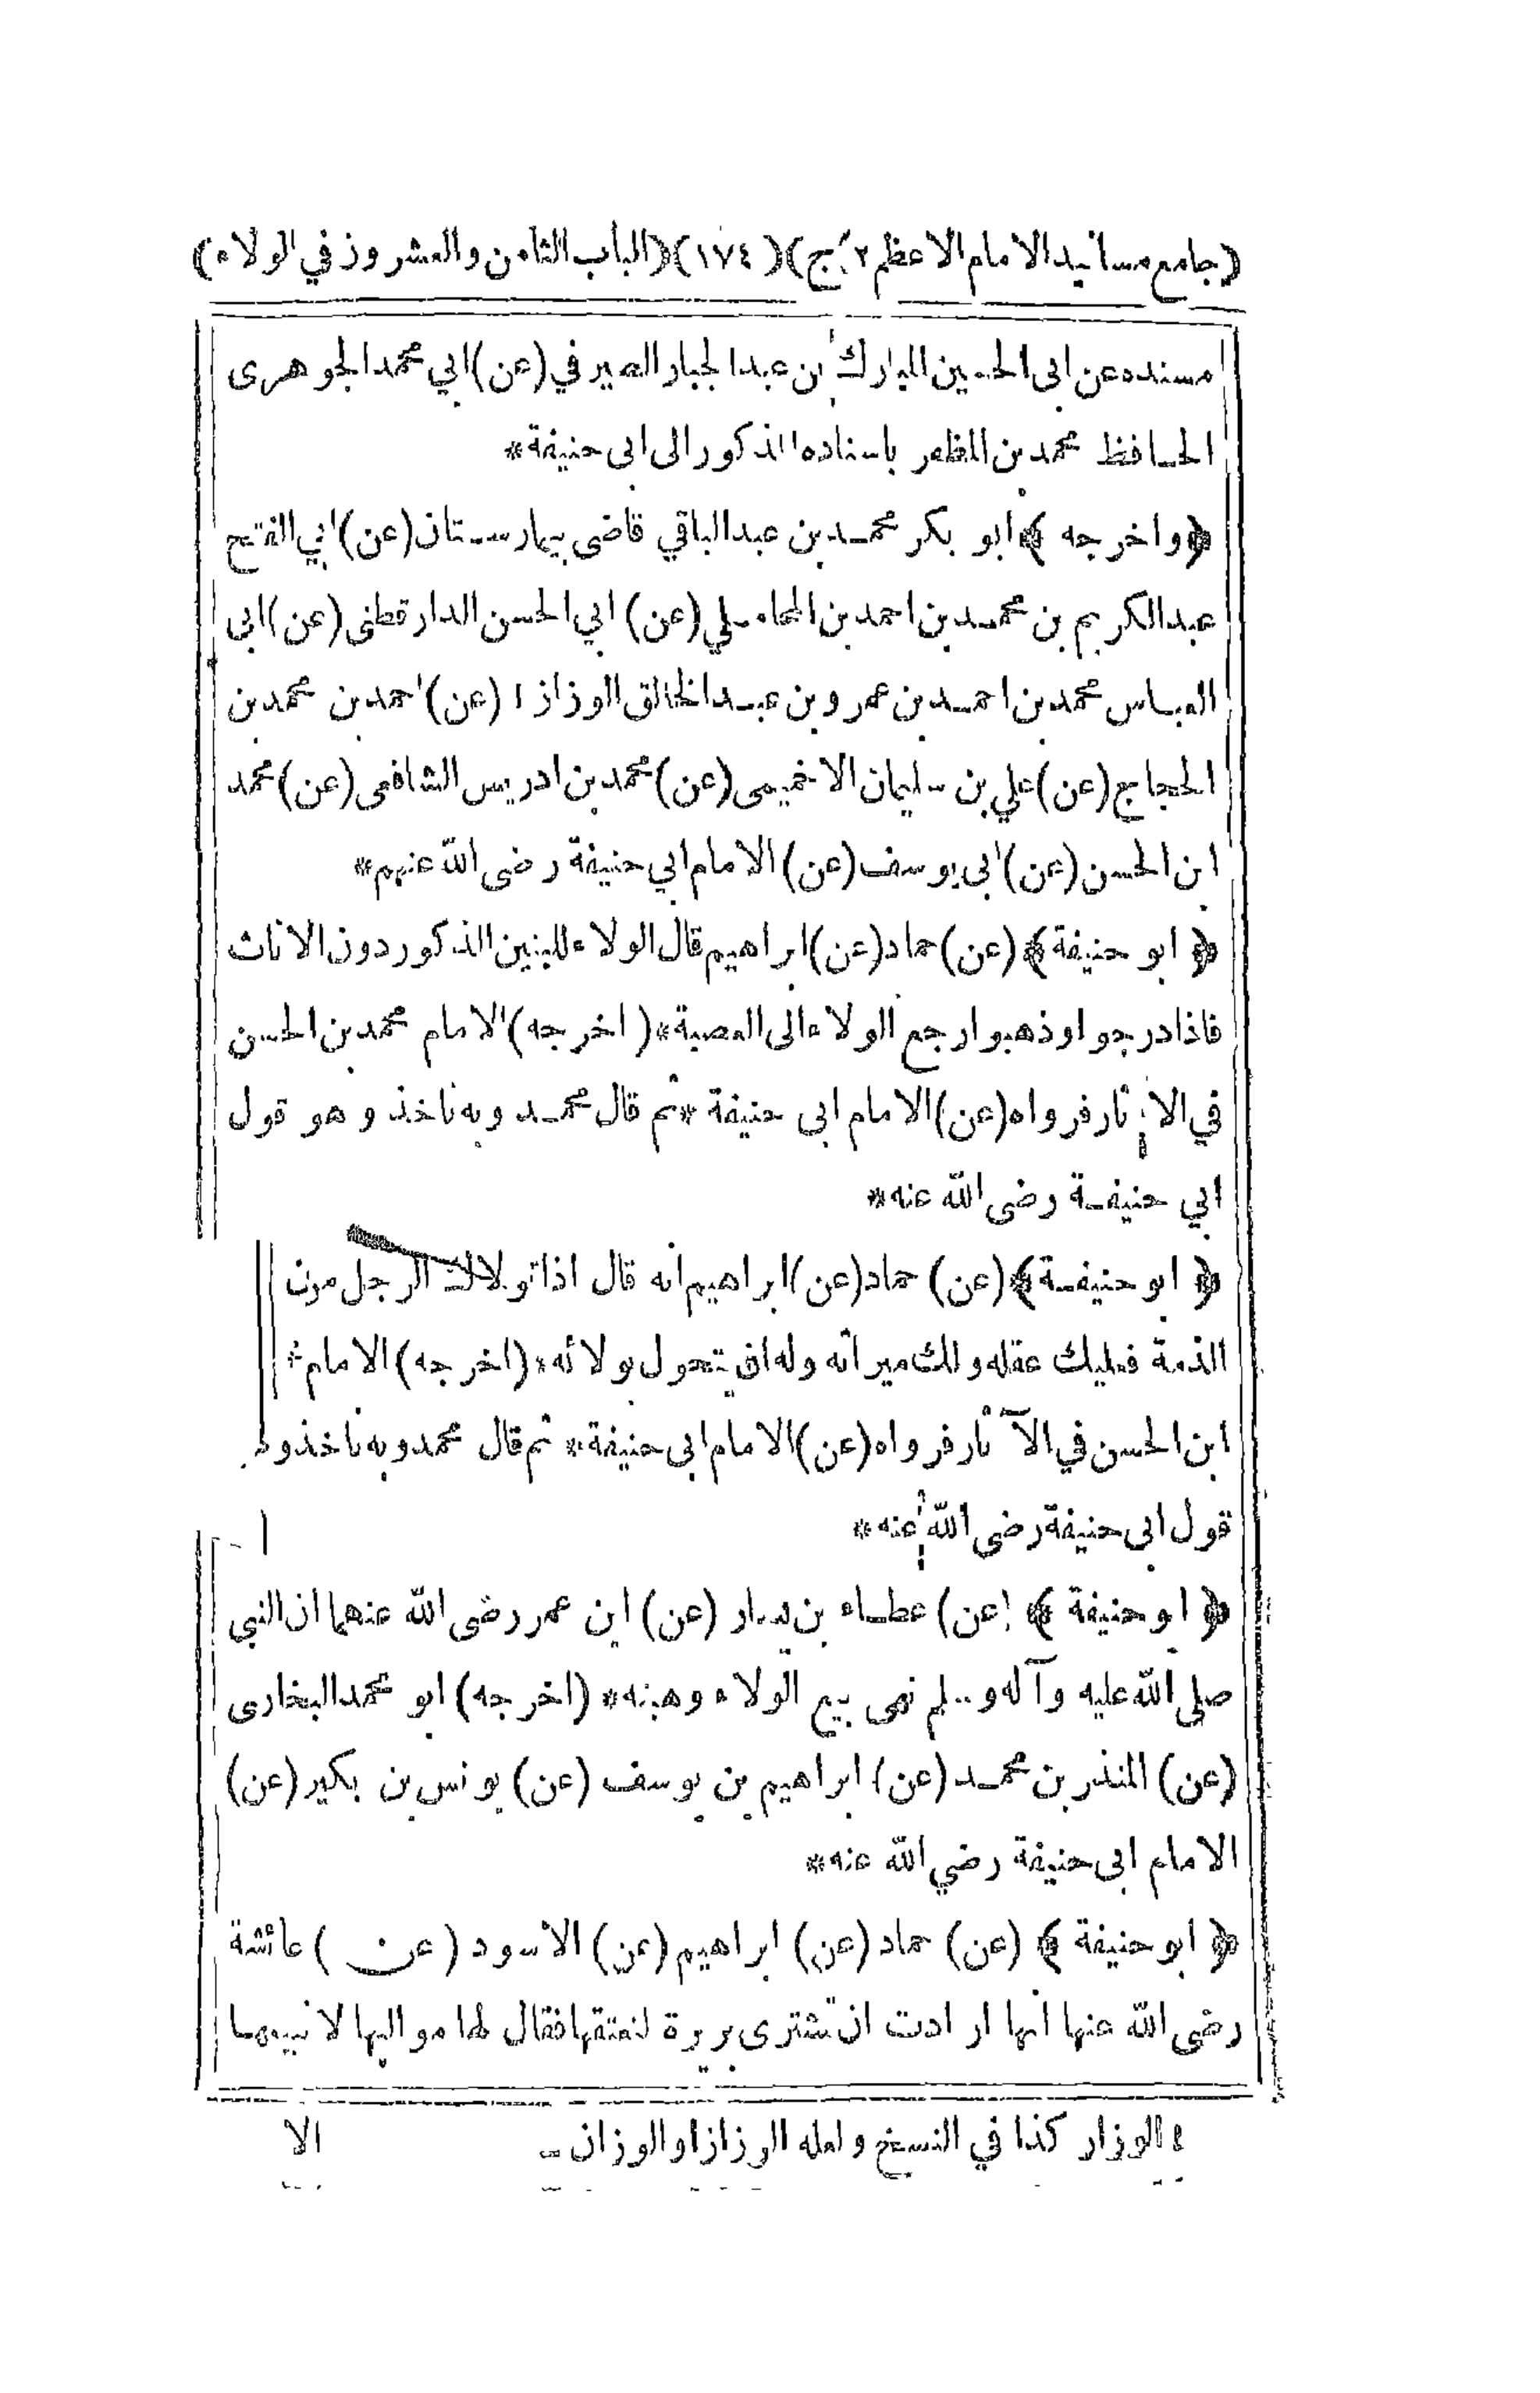 (جامع مسانيد الامام الاعظم ٢ ج) (١٧٤) (الباب الثامن والعشرون في الولاء)
مسنده عن ابى الحسين المبارك بن عبد الجبار الصيرفي (عن) ابي محمد الجوهرى
الحافظ محمد بن المظفر باسناده المذكور الى ابى حنيفة *
﴿واخرجه﴾ ابو بكر محمد بن عبد الباقي قاضى بيمارستان (عن) ابي الفتح
عبد الكريم بن محمد بن احمد بن المحاملي (عن) ابي الحسن الدار قطنى (عن) ابى
العباس محمد بن احمد بن عمرو بن عبد الخالق الوزاز ١ (عن) احمد بن محمد بن
الحجاج (عن) علي بن سليمان الاخميمى (عن) محمد بن ادريس الشافعى (عن) محمد
ابن الحسن (عن) ابى يوسف (عن) الامام ابي حنيفة رضى الله عنهم *
﴿ابو حنيفة﴾ (عن) حماد (عن) ابراهيم قال الولاء للبنين الذكور دون الاناث
فاذا درجو اوذهبوا رجع الولاء الى العصبة * (اخرجه) الامام محمد بن الحسن
في الآثار فرواه (عن) الامام ابى حنيفة * ثم قال محمد وبه ناخذ وهو قول
ابي حنيفة رضى الله عنه *
﴿ابو حنيفة﴾ (عن) حماد (عن) ابراهيم انه قال اذا تولاك الرجل من
الذمة فعليك عقله ولك ميراثه وله ان يتحول بولائه * (اخرجه) الامام
ابن الحسن في الآثار فرواه (عن) الامام ابى حنيفة * ثم قال محمد وبه ناخذ
قول ابى حنيفة رضى الله عنه *
﴿ابو حنيفة﴾ (عن) عطاء بن يسار (عن) ابن عمر رضى الله عنهما ان النبي
صلى الله عليه وآله وسلم نهى بيع الولاء وهبته * (اخرجه) ابو محمد البخارى
(عن) المنذر بن محمد (عن) ابراهيم بن يوسف (عن) يونس بن بكير (عن)
الامام ابى حنيفة رضي الله عنه *
﴿ابو حنيفة﴾ (عن) حماد (عن) ابراهيم (عن) الاسود (عن) عائشة
رضى الله عنها انها ارادت ان تشترى بريرة لتعتقها فقال لها مواليها لا نبيعها
١ الوزار كذا في النسخ ولعله الرزاز او الوزان -
الا